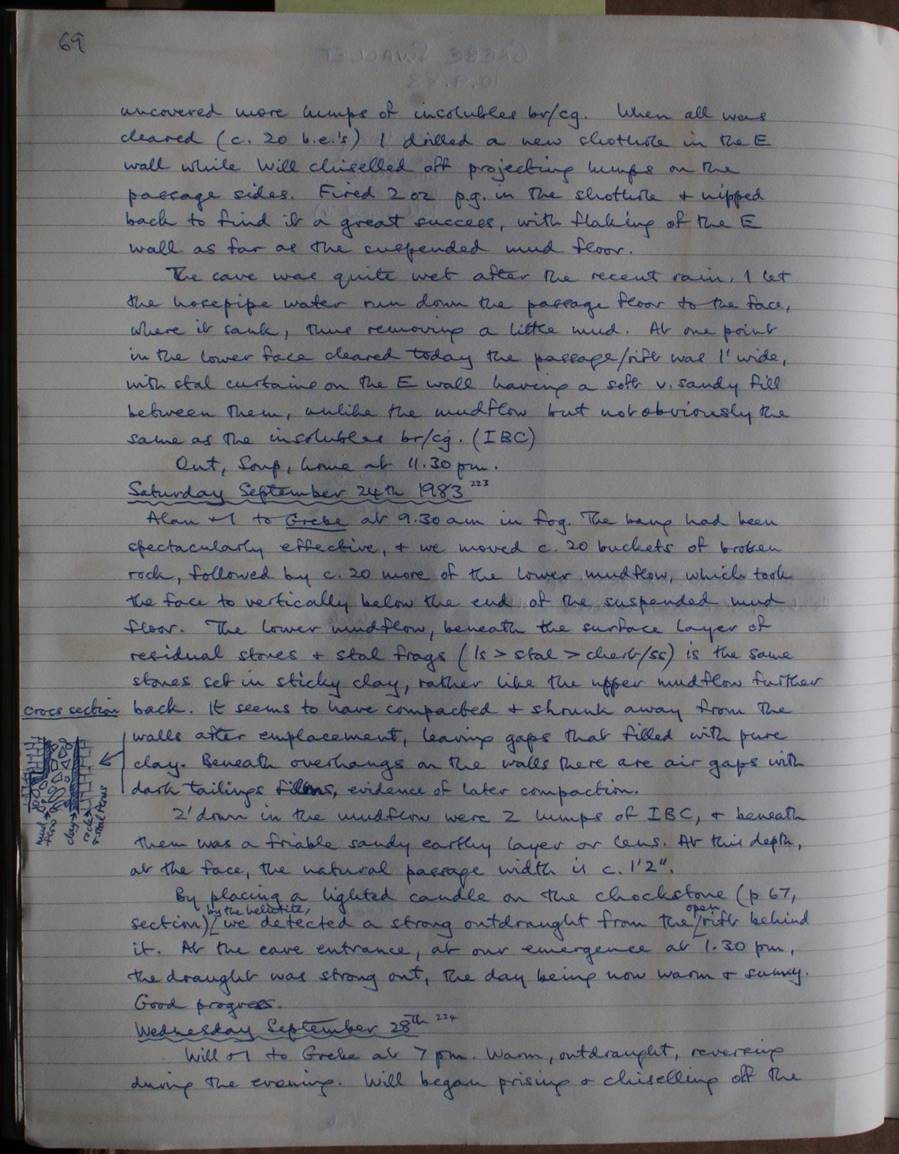 69
uncovered more lumps of insolubles br/cg. When all was
cleared (c. 20 b.e.'s) I drilled a new shothole in the E
wall while Will chiselled off projecting lumps on the
passage sides. Fired 2 oz p.g. in the shothole + nipped
back to find it a great success, with flaking of the E
wall as far as the suspended mud floor.
The cave was quite wet after the recent rain. I let
the hosepipe water run down the passage floor to the face,
where it sank, thus removing a little mud. At one point
in the lower face cleared today the passage/rift was 1' wide,
with stal curtains on the E wall having a soft v. sandy fill
between them, unlike the mudflow but not obviously the
same as the insolubles br/cg. (IBC)
Out, Soup, home at 11.30 pm.
Saturday September 24th 1983 223
Alan + I to Grebe at 9.30 am in fog. The bang had been
spectacularly effective, + we moved c. 20 buckets of broken
rock, followed by c. 20 more of the lower mudflow, which took
the face to vertically below the end of the suspended mud
floor. The lower mudflow, beneath the surface layer of
residual stones + stal frags (ls > stal > chert/ss) is the same
stones set in sticky clay, rather like the upper mudflow further
back. It seems to have compacted + shrunk away from the
walls after emplacement, leaving gaps that filled with pure
clay. Beneath overhangs on the walls there are air gaps with
dark tailings films, evidence of later compaction.
cross section
mud flow
clay
rock
2' down in the mudflow were 2 lumps of IBC, + beneath
them was a friable sandy earthy layer or lens. At this depth,
at the face, the natural passage width is c. 1'2".
By placing a lighted candle on the chockstone (p 67,
section) by the helictite, we detected a strong outdraught from the open rift behind
it. At the cave entrance, at our emergence at 1.30 pm,
the draught was strong out, the day being now warm + sunny.
Good progress.
Wednesday September 28th 224
Will + I to Grebe at 7 pm. Warm, outdraught, reversing
during the evening. Will began prising + chiselling off the